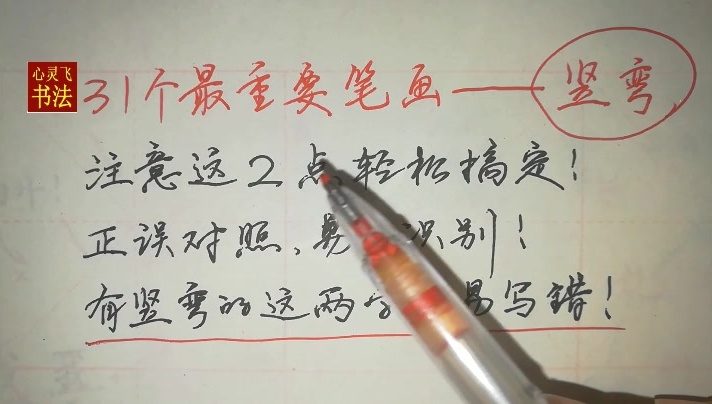 心灵飞
书法
31个最重要笔画——竖弯
注意这2点,轻松搞定!
正误对照、 识别!
有竖弯的这两 易写错!